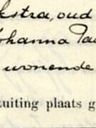 kstra, oud
ohanna Pau
wonende
tuiting plaats g